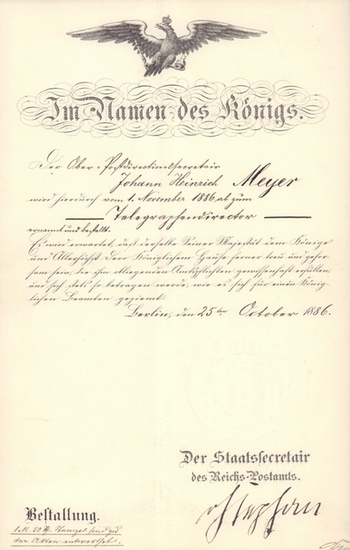 Im Namen des Königs.
Der Ober-Postdirectionssecretair
Johann Heinrich Meyer
wird hierdurch vom 1. November 1886 ab zum
Telegraphendirector
ernannt und bestellt.
Es wird erwartet, daß derselbe Seiner Majestät dem Könige
und Allerhöchst Dero Königlichem Hause ferner treu und gehor-
sam sein, die ihm obliegenden Amtspflichten gewissenhaft erfüllen
und sich stets so betragen werde, wie es sich für einen König-
lichen Beamten geziemt.
Berlin, den 25ten October 1886.
Der Staatssecretair
des Reichs-Postamts.
Stephan
Bestallung.
1 M. 50 Pf. Stempel sind zu
den Akten entwerthet.